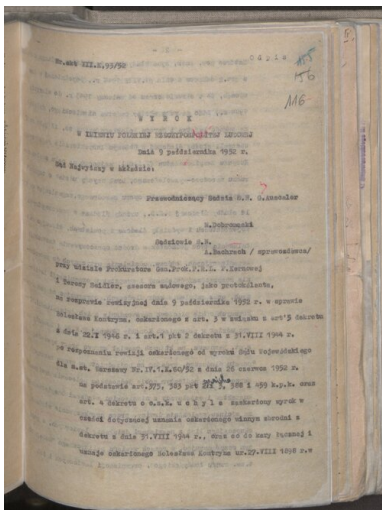 Nr.akt III.K.93/52
Odpis
155
156
116
W Y R O K
W IMIENIU POLSKIEJ RZECZYPOSPOLITEJ LUDOWEJ
Dnia 9 października 1952 r.
Sąd Najwyższy w składzie:
Przewodniczący Sędzia S.N. G.Auscaler
Sędziowie S.N.
/ sprawozdawca/
przy udziale Prokuratora Gen.Prok.P.R.L. P.Kernowej
i Danuty Reidler, asesora sądowego, jako protokolanta,
na rozprawie rewizyjnej dnia 9 października 1952 r. w sprawie
Bolesława Kontryma, oskarżonego z art. 3 w związku z art 5 dekretu
z dnia 22.I 1946 r. i art.1 pkt 2 dekretu z 31.VIII 1944 r.
po rozpoznaniu rewizji oskarżonego od wyroku Sądu Wojewódzkiego
dla m.st. Warszawy Nr.IV.1.K.60/52 z dnia 26 czerwca 1952 r.
na podstawie art.375, 383 pkt 3, 388 i 499 k.p.k. oraz
art. 4 dekretu o o.s.k. u c h y l a zaskarżony wyrok w
części dotyczącej uznania oskarżonego winnym zbrodni z
dekretu z dnia 31.VIII 1944 r., oraz co do kary łącznej i
uznaje oskarżonego Bolesława Kontryma ur.27.VIII 1898 r.w